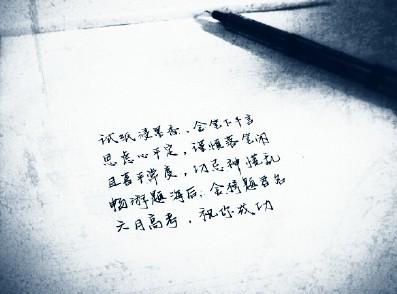 试纸浸墨香,金笔下千言
思虑心平定,谨慎落笔闲
且喜平常度,切忌神慌乱
畅游题海后,金榜题君名
六月高考,祝你成功